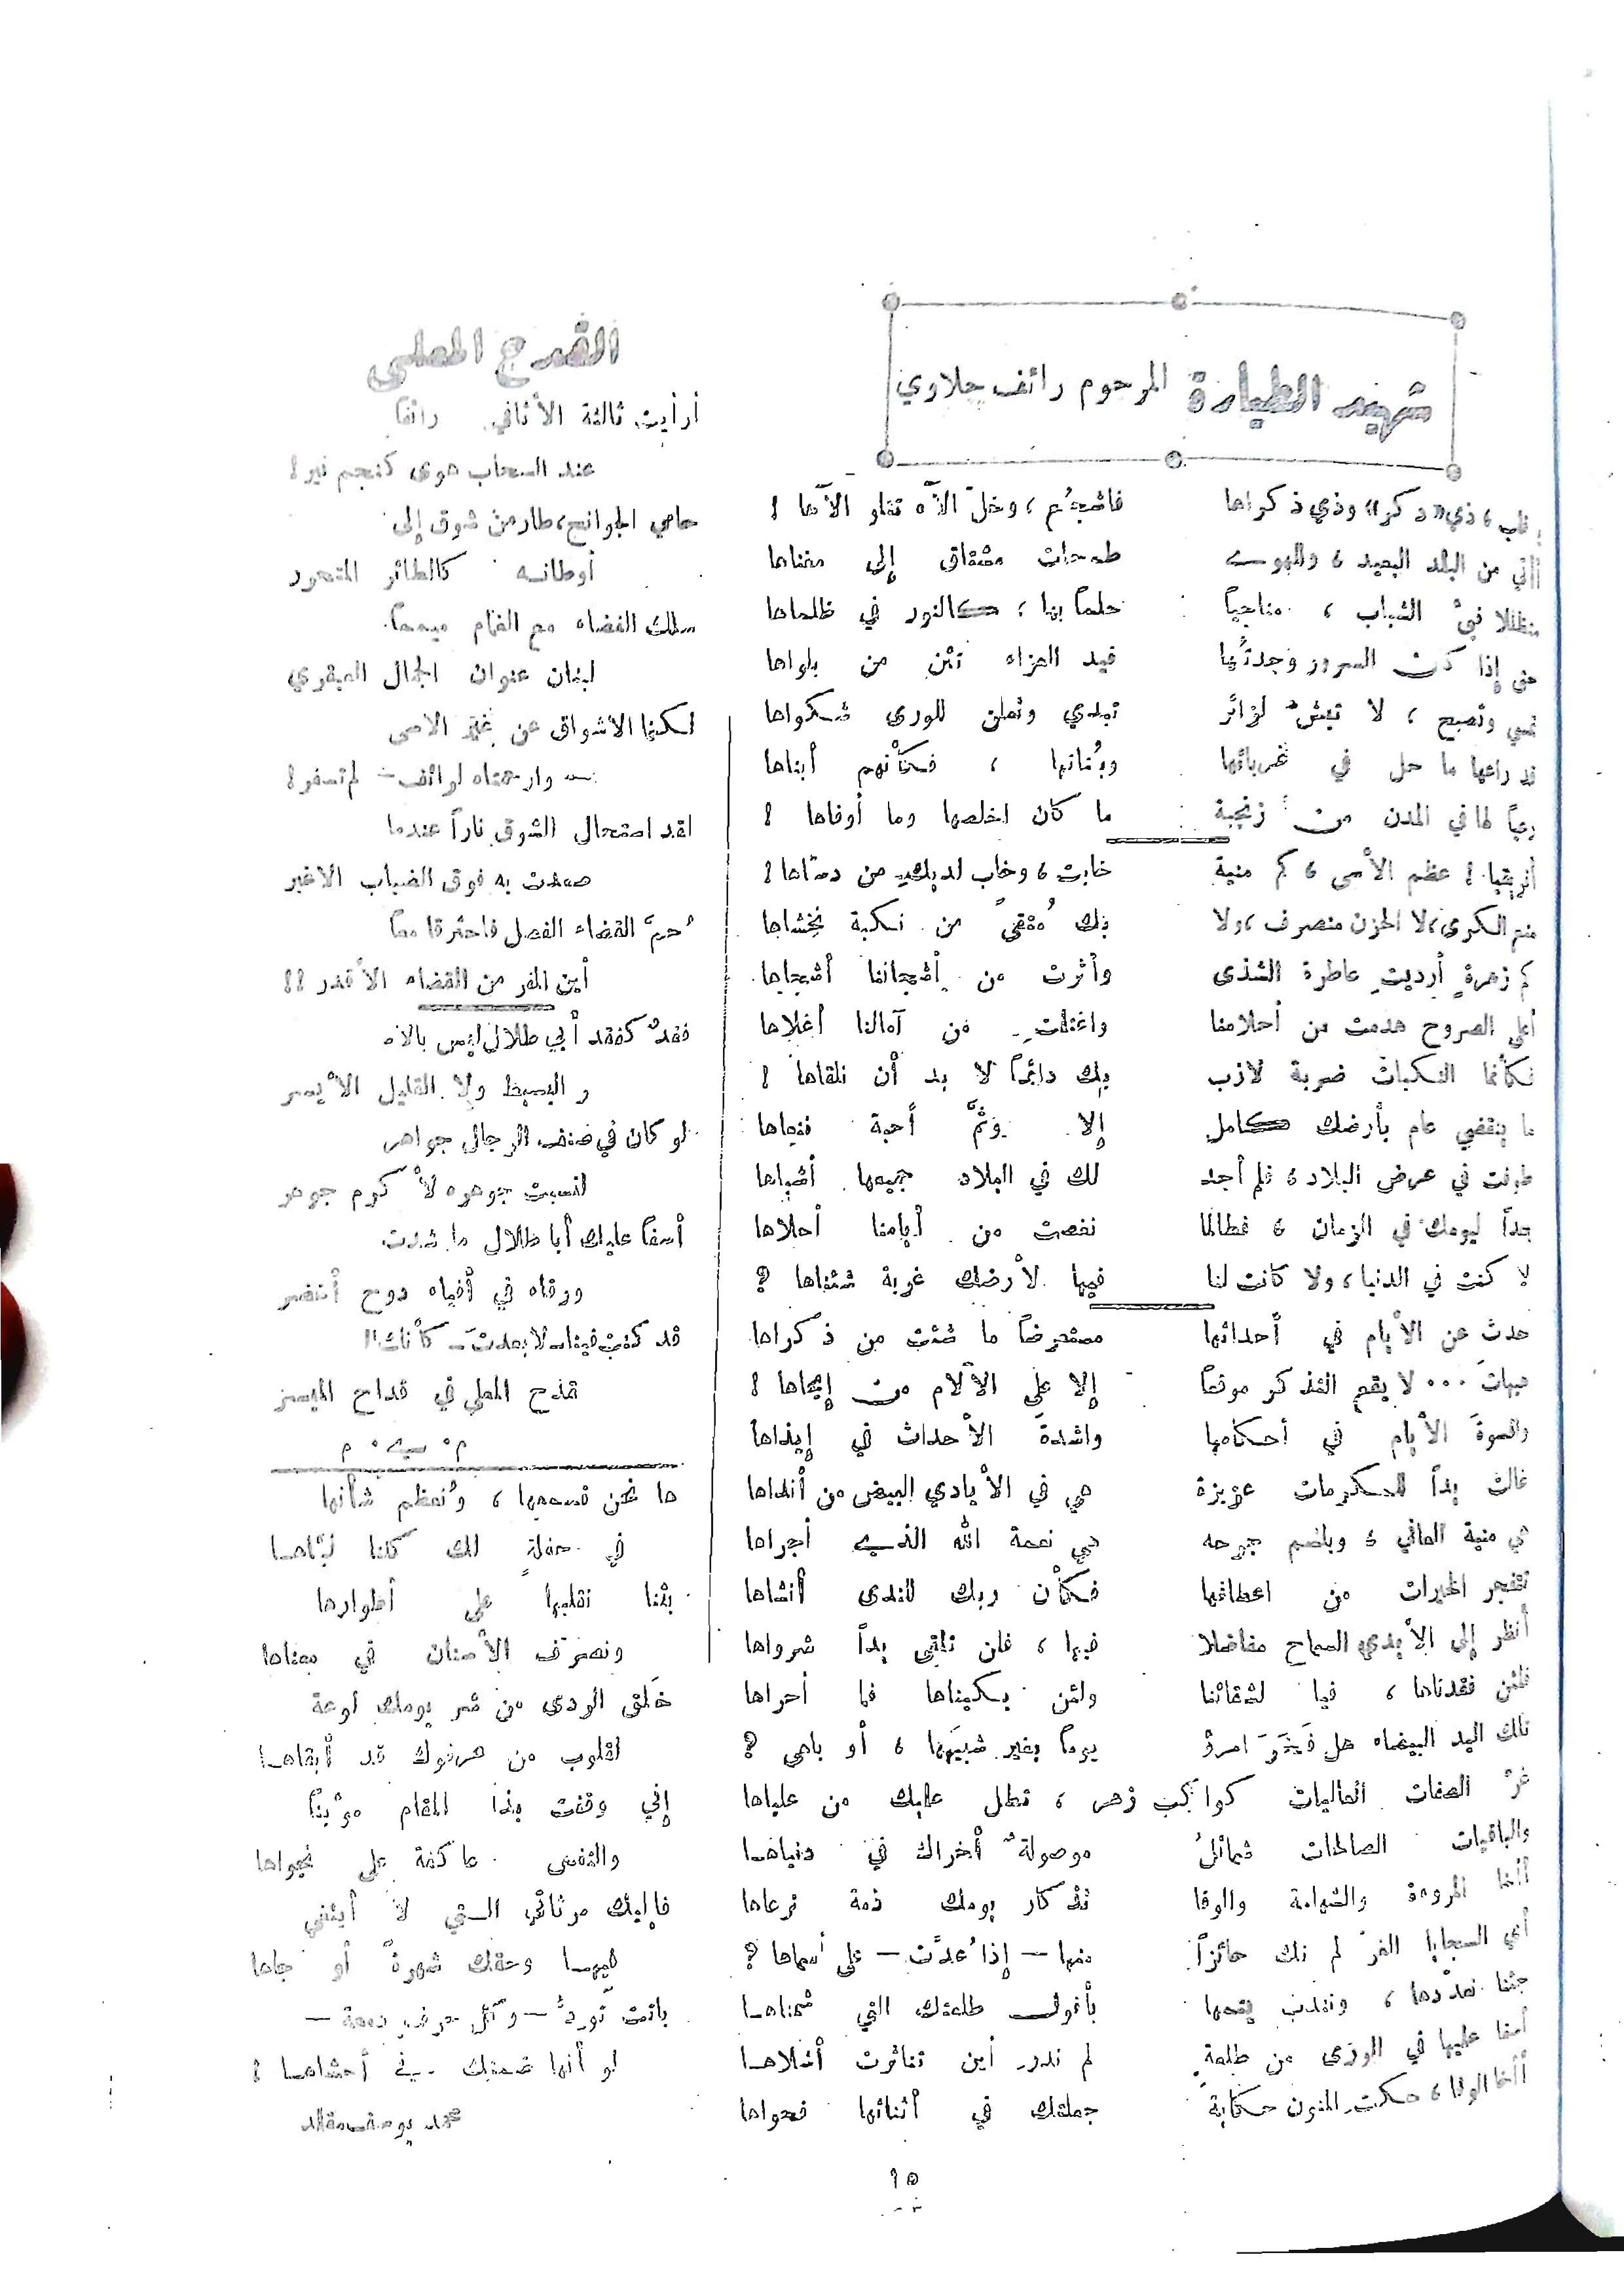 شهيد الطيارة المرحوم رائف حلاوي
ذي «دكر» وذي ذكراها فاشج وخل الآه تتلو الآها !
من البلد البعيد ، طمحات مشتاق إلى مغناها
الشباب ، مناجياً حلماً بها ، كالنور في ظلماها
حتى إذا السرور وجدتُها قيد العزاء تئن من بلواها
وتصبح ، لا لزائر تبدي وتعلن للورى شكواها
راعها ما حل في غربائها ، فكأنهم أبناها
لها في المدن من زنجية ما كان اخلصها وما أوفاها !
أفريقيا ! عظم الأسى ، كم منية خابت ، وخاب لديك من
الكرى ، لا الحزن منصرف ، ولا بك من نكبة نخشاها
كم زهرةٍ أرديتِ عاطرة الشذى وأثرت من أشجاننا أشجاها
أعلى الصروح هدمت من أحلامنا واغتلت من آمالنا أغلاها
فكأنما النكبات ضربة لازب بك دائماً لا بد أن نلقاها !
ما ينقضي عام بأرضك كامل إلا وثمَّ أحبة ننعاها
طوفت في عرض البلاد ، فلم أجد لك في البلاد جميعها أشباها
ليومك في الزمان ، فطالما نغصت من أيامنا أحلاها
لا كنت في الدنيا ، ولا كانت لنا فيها لأرضك غربة شئناها ؟
حدث عن الأيام في أحداثها مستعرضاً ما شئت من ذكراها
هيهات ... لا يقع التذكر موقعاً إلا على الآلام من !
الأيام في أحكامها الأحداث في إيذاها
غالت يداً للمكرمات عزيزة هي في الأيادي البيض من أنداها
هي منية العافي ، وبلسم جرحه هي نعمة الله الذي أجراها
تتفجر الخيرات من اعطافها فكأن ربك للندى أنشاها
أنظر إلى الأيدي السماح مفاضلا فيها ، فلن تلقى يداً شرواها
فلئن فقدناها ، فيا لشقائنا ولئن بكيناها فما أحراها
تلك اليد البيضاء هل فَخَرَ امرؤ يوماً بغير شبيهها ، أو باهى ؟
غرّ الصفات العاليات كواكب زهر ، تطل عليك من علياها
والباقيات الصالحات شمائلٌ موصولةٌ أخراك في دنياها
أأخا المروءة والشهامة والوفا تذكار يومك ذمة نرعاها
أي السجايا الغرّ لم تك حائزاً منها — إذا عُدَّت — على أسماها ؟
جئنا نعدّدها ، ونندب بأفول طلعتك التي شمناها
أسفا عليها في الورى من طلعةٍ لم ندر أين تناثرت أشلاها
أأخا الوفا ، حكت المنون حكاية جملتك في أثنائها فحواها
القدح المعلى
أرأيت ثالثة الأثافي رائفاً
عند السحاب هوى كنجم نير !
حامي الجوانح ، طار من شوق إلى
أوطانه كالطائر المتحرر
سلك الفضاء مع الغمام ميمماً
لبنان عنوان الجمال العبقري
لكنما الاشواق عن غير الاسى
— وارحمتاه لرائف — لم تسفر !
لقد استحال الشوق ناراً عندما
صعدت به فوق الضباب الاغبر
حُمَّ القضاء الفصل فاحترقا معاً
أين المفر من القضاء الأقدر !!
فقدٌ كفقد أبي طلال ليس بالا
البسيط ولا القليل الأيسر
لو كان في صنف الرجال جواهر
لنسبت جوهره لأكرم جوهر
أسفاً عليك أبا طلال ما شدت
ورقاء في أفياء دوح أنضر
قد كنت فينا — لا بعدت — كأنك ال
قدح المعلى في قداح الميسر
ما نحن نسمعها ، ونُعظم شأنها
في حفلةٍ لك كلنا لبّاها
بتنا نقلبها على أطوارها
ونصرّف الأذهان في معناها
خَلق الردى من شر يومك لوعة
لقلوب من عرفوك قد أبقاها
إني وقفت بذا المقام مؤبناً
والنفس عاكفة على نجواها
فإليك مرثاتي التي لا أبتغي
فيها وحقك شهرةً أو جاها
باتت تودّ — وكل حرف دمعة —
لو أنها ضمتك في أحشاها !
محمد يوسف مقلد
١٥